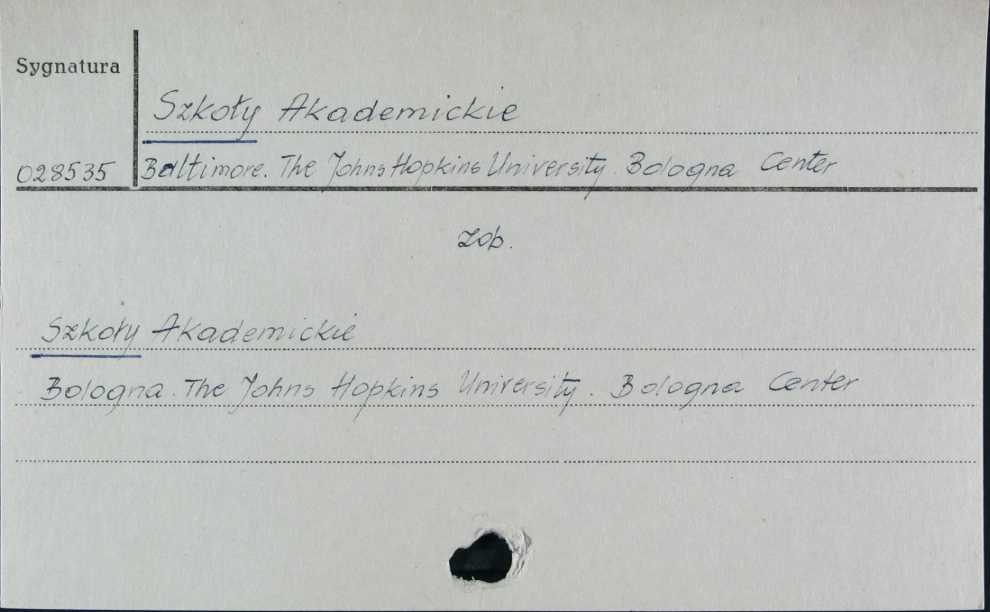 Sygnatura
Szkoły Akademickie
028535 Baltimore. The Johns Hopkins University. Bologna Center
zob.
Szkoły Akademickie
Bologna. The Johns Hopkins University. Bologna Center